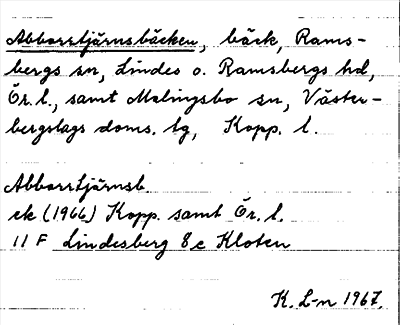 Abborrtjärnsbäcken, bäck, Rams-
bergs sn, Lindes o. Ramsbergs hd,
Ör. l., samt Malingsbo sn, Väster-
bergslags doms. tg, Kopp. l.
Abborrtjärnsb.
ek (1966) Kopp. samt Ör. l.
11 F Lindesberg 8c Kloten
K. L-n 1967.